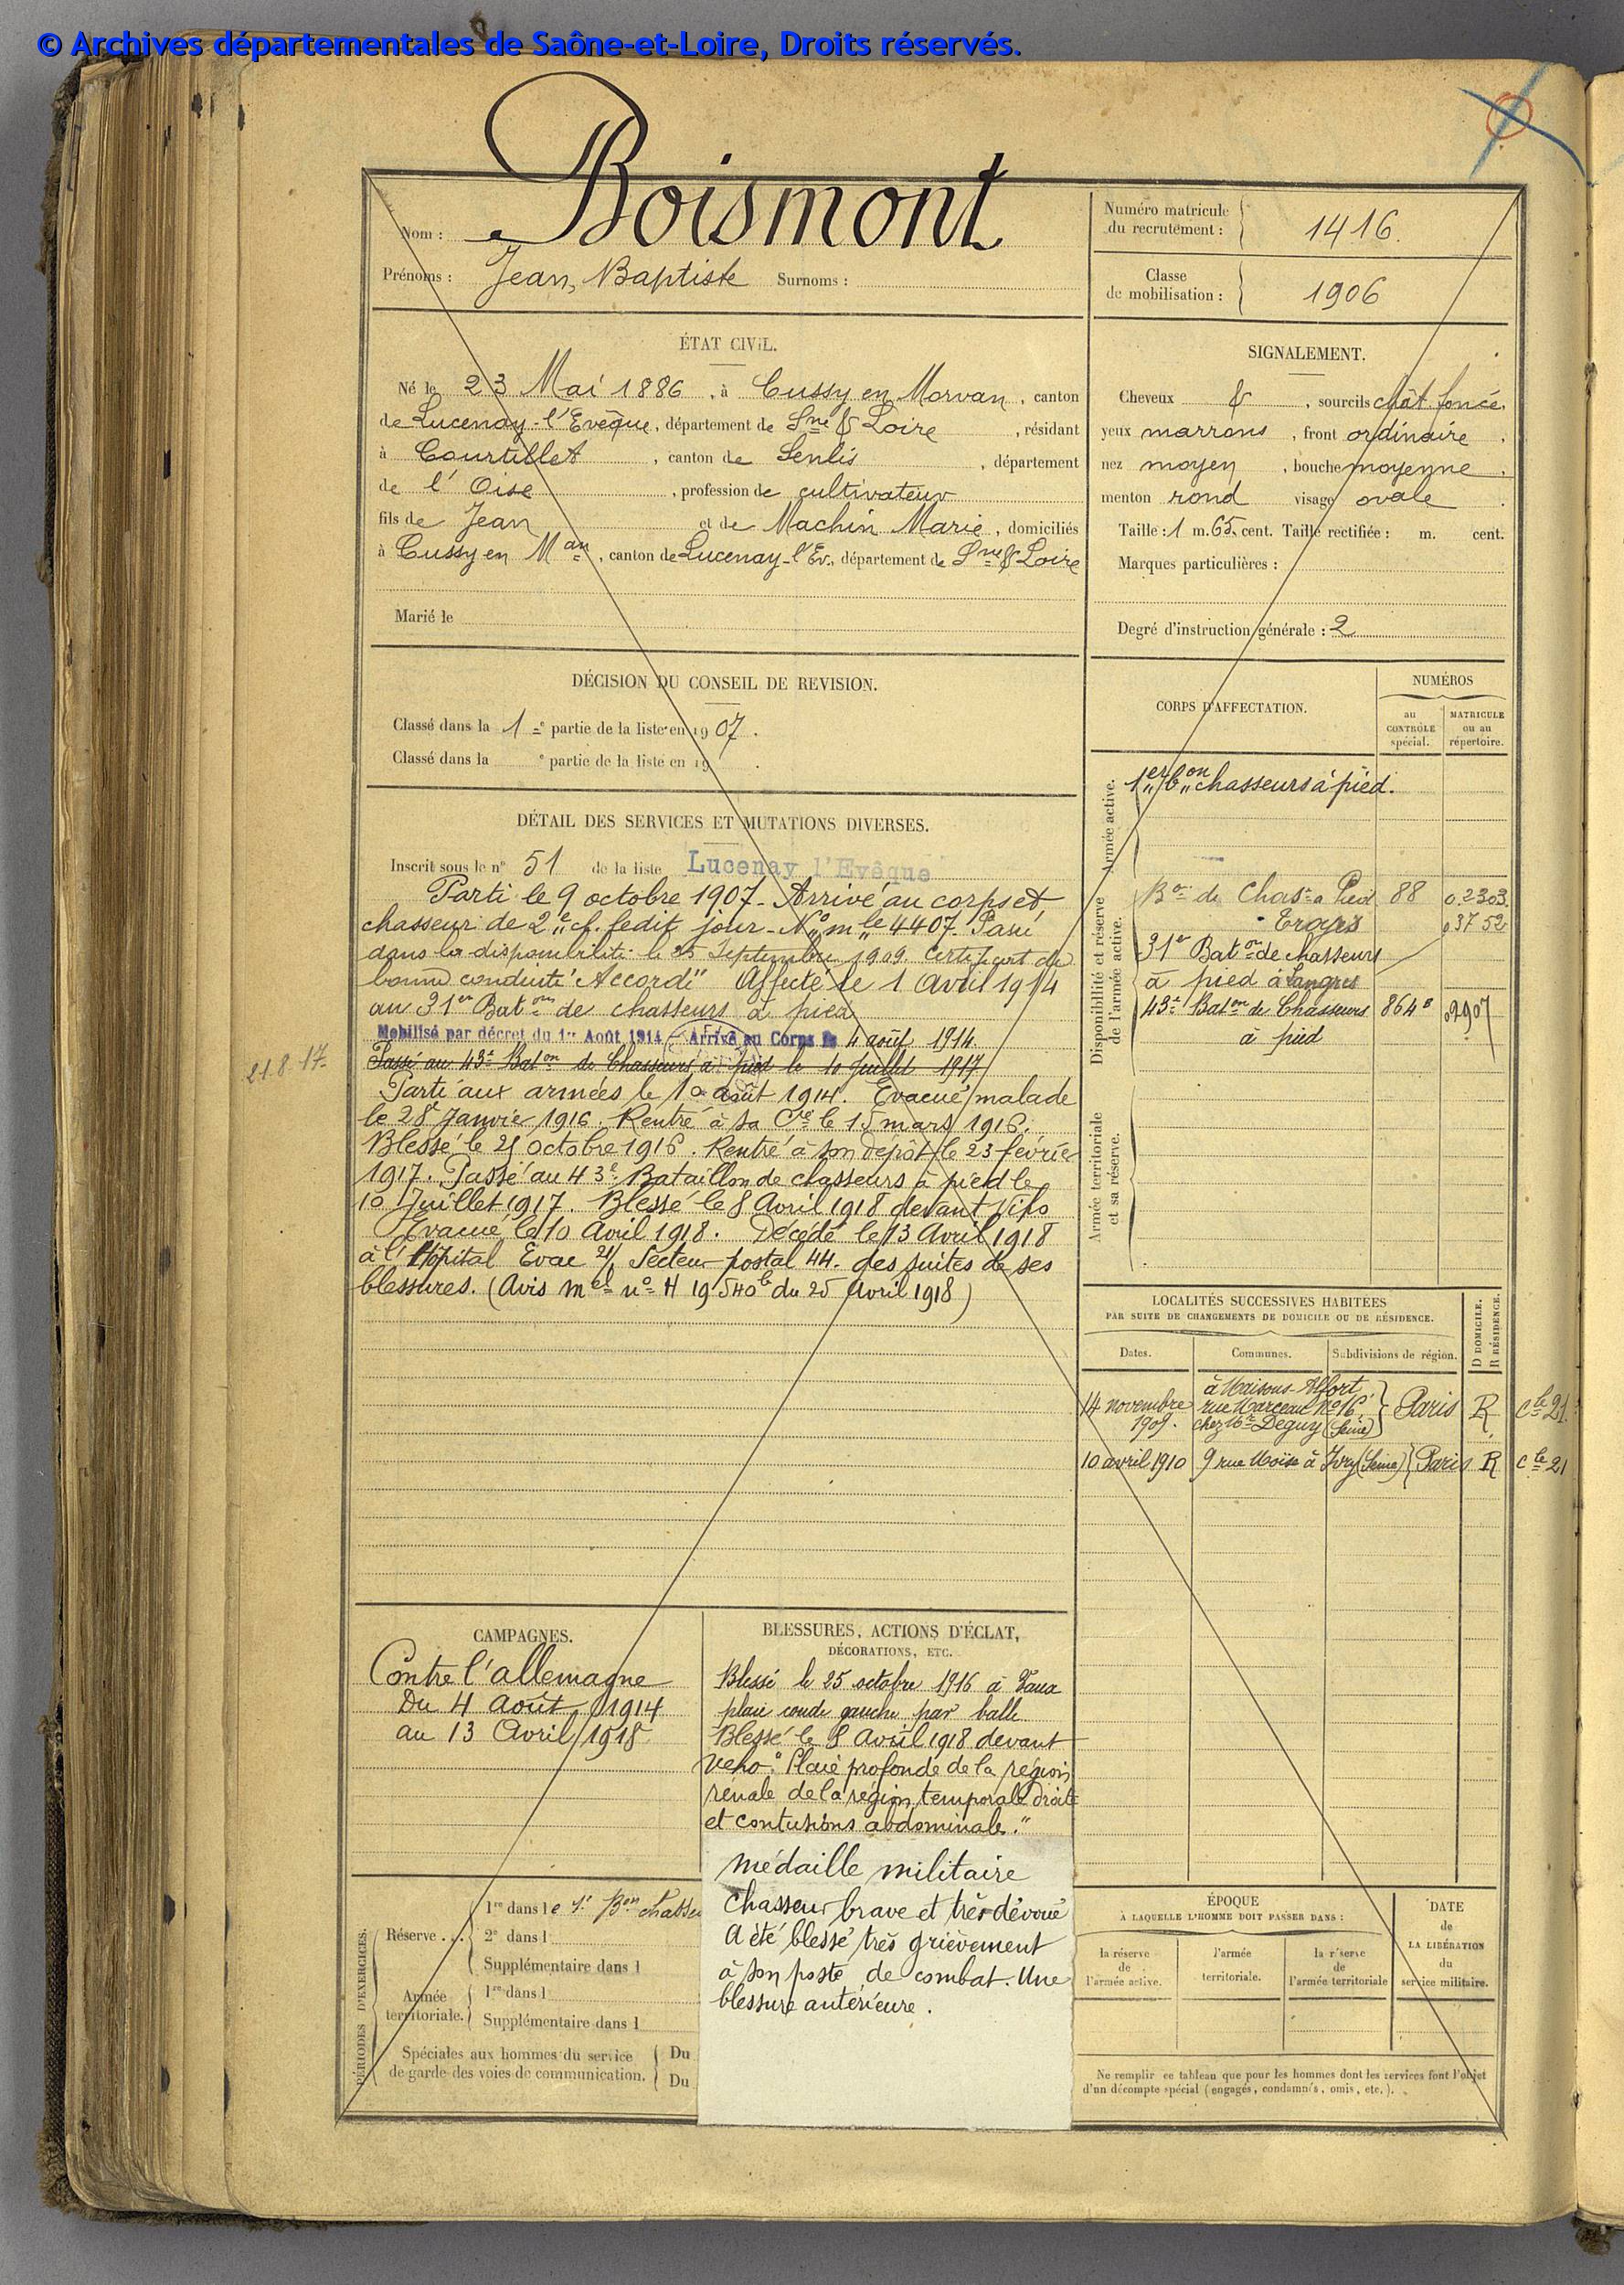 © Archives départementales de Saône-et-Loire, Droits réservés.
Nom : Boismont
Prénoms : Jean, Baptiste Surnoms :
Numéro matricule du recrutement : 1416.
Classe de mobilisation : 1906
ÉTAT CIVIL.
Né le 23 Mai 1886, à Cussy en Morvan, canton
de Lucenay-l'Evêque, département de Sne & Loire, résidant
à Courtillet, canton de Senlis, département
de l'Oise, profession de cultivateur
fils de Jean et de Machin Marie, domiciliés
à Cussy en Man, canton de Lucenay-l'Ev., département de Sne & Loire
Marié le
SIGNALEMENT.
Cheveux &, sourcils chât. foncé,
yeux marrons, front ordinaire,
nez moyen, bouche moyenne,
menton rond visage ovale.
Taille : 1 m. 65 cent. Taille rectifiée : m. cent.
Marques particulières :
Degré d'instruction générale : 2
DÉCISION DU CONSEIL DE REVISION.
Classé dans la 1e partie de la liste en 1907.
Classé dans la e partie de la liste en 19 .
DÉTAIL DES SERVICES ET MUTATIONS DIVERSES.
Inscrit sous le n° 51 de la liste Lucenay l'Evêque
Parti le 9 octobre 1907 - Arrivé au corps et
chasseur de 2e cl. ledit jour - No mle 4407. Passé
dans la disponibilité le 25 Septembre 1909. Certificat de
bonne conduite "Accordé" Affecté le 1 Avril 1914
au 31er Baton de chasseurs à pied
Mobilisé par décret du 1er Août 1914 - Arrivé au Corps le 4 août 1914
21.8.17.
Passé au 43e Baton de Chasseurs à pied le 10 Juillet 1917
Parti aux armées le 10 août 1914. Evacué malade
le 28 Janvier 1916. Rentré à sa Cie le 15 mars 1916.
Blessé le 25 octobre 1916. Rentré à son dépôt le 23 février
1917. Passé au 43e Bataillon de chasseurs à pied le
10 Juillet 1917. Blessé le 8 Avril 1918 devant
Evacué le 10 Avril 1918. Décédé le 13 Avril 1918
à l'Hôpital Evac 21/ Secteur postal 44. des suites de ses
blessures. (Avis mel no H 19540b du 25 Avril 1918)
CORPS D'AFFECTATION.
NUMÉROS
au CONTRÔLE spécial.
MATRICULE ou au répertoire.
Armée active.
1er bon chasseurs à pied.
Disponibilité et réserve de l'armée active.
Bon de Chasrs à Pied 88 0.2303.
Troyes 03752
31er Baton de chasseurs
à pied à Langres
43e Baton de Chasseurs 864B 02907
à pied
Armée territoriale et sa réserve.
LOCALITÉS SUCCESSIVES HABITÉES
PAR SUITE DE CHANGEMENTS DE DOMICILE OU DE RÉSIDENCE.
D DOMICILE.
R RÉSIDENCE.
Dates. Communes. Subdivisions de région.
14 novembre 1909. à Maisons-Alfort rue Marceau No 16 chez Mr Deguy (Seine) Paris R Cle 21.
10 avril 1910 9 rue Moïse à Ivry (Seine) Paris R cle 21
CAMPAGNES.
Contre l'allemagne
Du 4 Août 1914
au 13 Avril 1918
BLESSURES, ACTIONS D'ÉCLAT,
DÉCORATIONS, ETC.
Blessé le 25 octobre 1916 à Vaux
plaie coude gauche par balle
Blessé le 8 Avril 1918 devant
Veho "Plaie profonde de la région
rénale de la région temporale droite
et contusions abdominale."
médaille militaire
Chasseur brave et très dévoué
A été blessé très grièvement
à son poste de combat. Une
blessure antérieure.
PÉRIODES D'EXERCICES.
Réserve . . .
1re dans le 1er Bon chasseu
2e dans l
Supplémentaire dans l
Armée territoriale.
1re dans l
Supplémentaire dans l
Spéciales aux hommes du service
de garde des voies de communication.
Du
Du
ÉPOQUE
À LAQUELLE L'HOMME DOIT PASSER DANS :
la réserve de l'armée active.
l'armée territoriale.
la réserve de l'armée territoriale
DATE de LA LIBÉRATION du service militaire.
Ne remplir ce tableau que pour les hommes dont les services font l'objet
d'un décompte spécial (engagés, condamnés, omis, etc.).